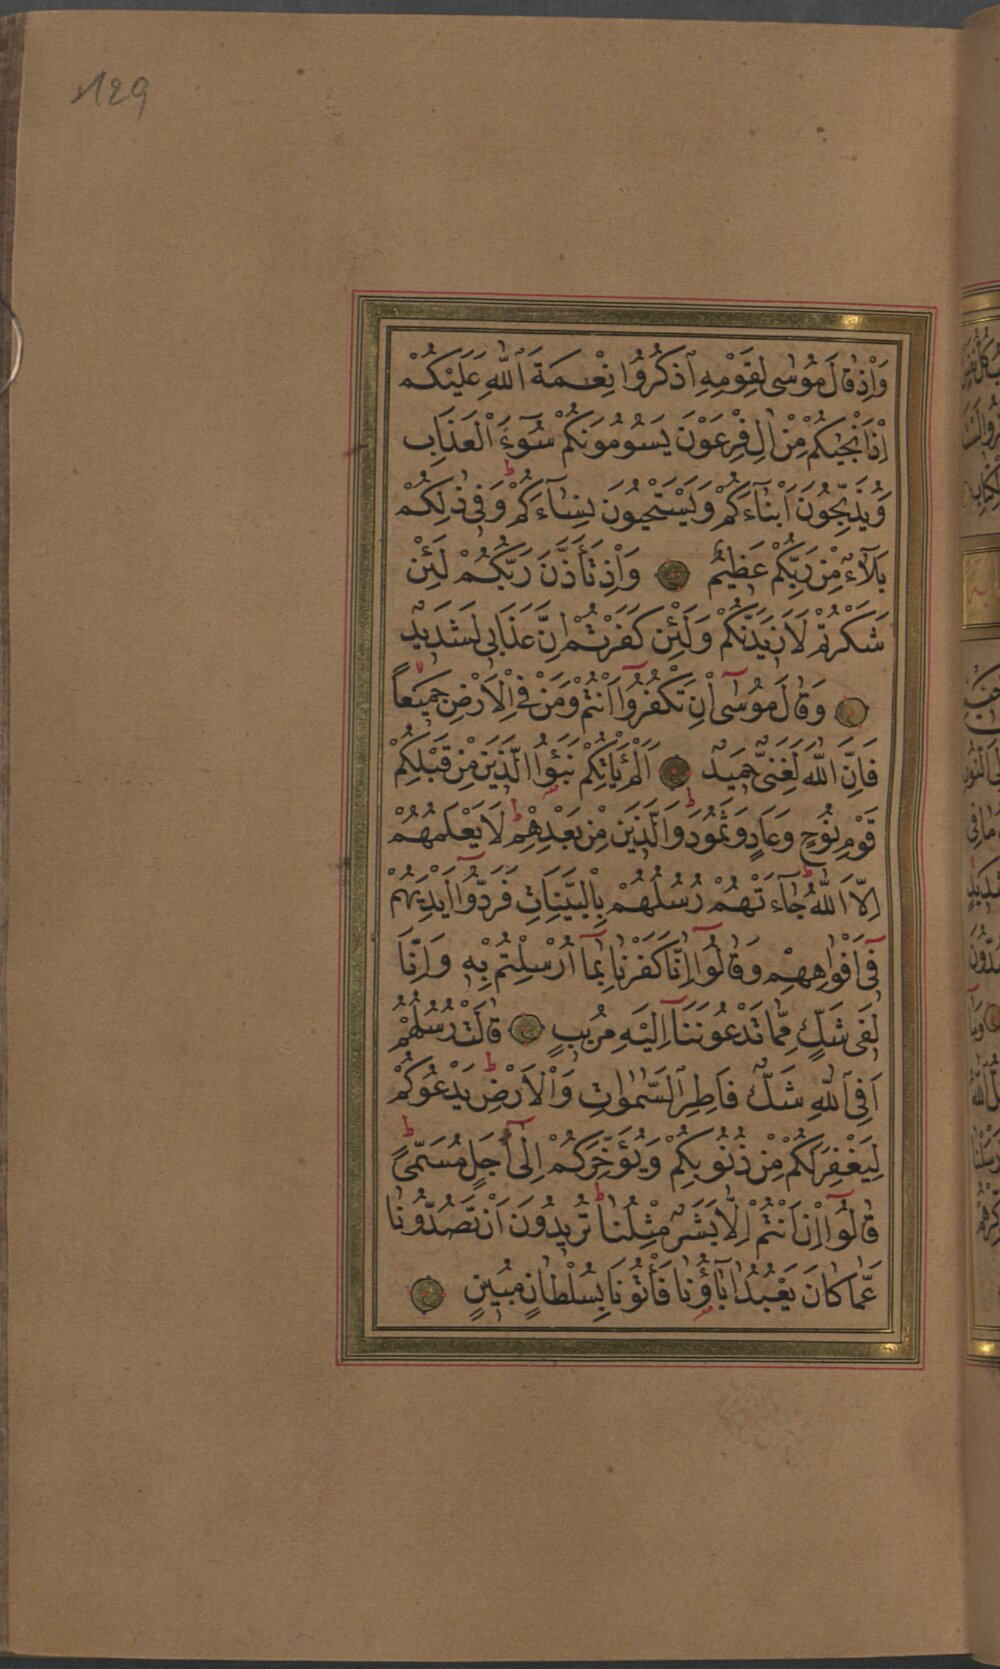 129
وَاِذْ قَالَ مُوسٰى لِقَوْمِهِ ٱذْكُرُوا نِعْمَةَ ٱللّٰهِ عَلَيْكُمْ
اِذْ اَنْجٰيكُمْ مِنْ اٰلِ فِرْعَوْنَ يَسُومُونَكُمْ سُوٓءَ الْعَذَابِ
وَيُذَبِّحُونَ اَبْنَآءَكُمْ وَيَسْتَحْيُونَ نِسَآءَكُمْ ط وَفِى ذٰلِكُمْ
بَلَآءٌ مِنْ رَبِّكُمْ عَظِيمٌ وَاِذْ تَاَذَّنَ رَبُّكُمْ لَئِنْ
شَكَرْتُمْ لَاَزِيدَنَّكُمْ وَلَئِنْ كَفَرْتُمْ اِنَّ عَذَابِى لَشَدِيدٌ
وَقَالَ مُوسٰٓى اِنْ تَكْفُرُٓوا اَنْتُمْ وَمَنْ فِى الْاَرْضِ جَمِيعًا
فَاِنَّ اللّٰهَ لَغَنِىٌّ حَمِيدٌ اَلَمْ يَاْتِكُمْ نَبَؤُا الَّذِينَ مِنْ قَبْلِكُمْ
قَوْمِ نُوحٍ وَعَادٍ وَثَمُودَ ط وَالَّذِينَ مِنْ بَعْدِهِمْ ط لَا يَعْلَمُهُمْ
اِلَّا اللّٰهُ ط جَآءَتْهُمْ رُسُلُهُمْ بِالْبَيِّنَاتِ فَرَدُّٓوا اَيْدِيَهُمْ
فِٓى اَفْوَاهِهِمْ وَقَالُٓوا اِنَّا كَفَرْنَا بِمَٓا اُرْسِلْتُمْ بِهِ وَاِنَّا
لَفِى شَكٍّ مِمَّا تَدْعُونَنَٓا اِلَيْهِ مُرِيبٍ قَالَتْ رُسُلُهُمْ
اَفِى ٱللّٰهِ شَكٌّ فَاطِرِ ٱلسَّمٰوَاتِ وَالْاَرْضِ ط يَدْعُوكُمْ
لِيَغْفِرَ لَكُمْ مِنْ ذُنُوبِكُمْ وَيُؤَخِّرَكُمْ اِلٰٓى اَجَلٍ مُسَمًّى ط
قَالُٓوا اِنْ اَنْتُمْ اِلَّا بَشَرٌ مِثْلُنَا ط تُرِيدُونَ اَنْ تَصُدُّونَا
عَمَّا كَانَ يَعْبُدُ اٰبَآؤُنَا فَأْتُونَا بِسُلْطَانٍ مُبِينٍ